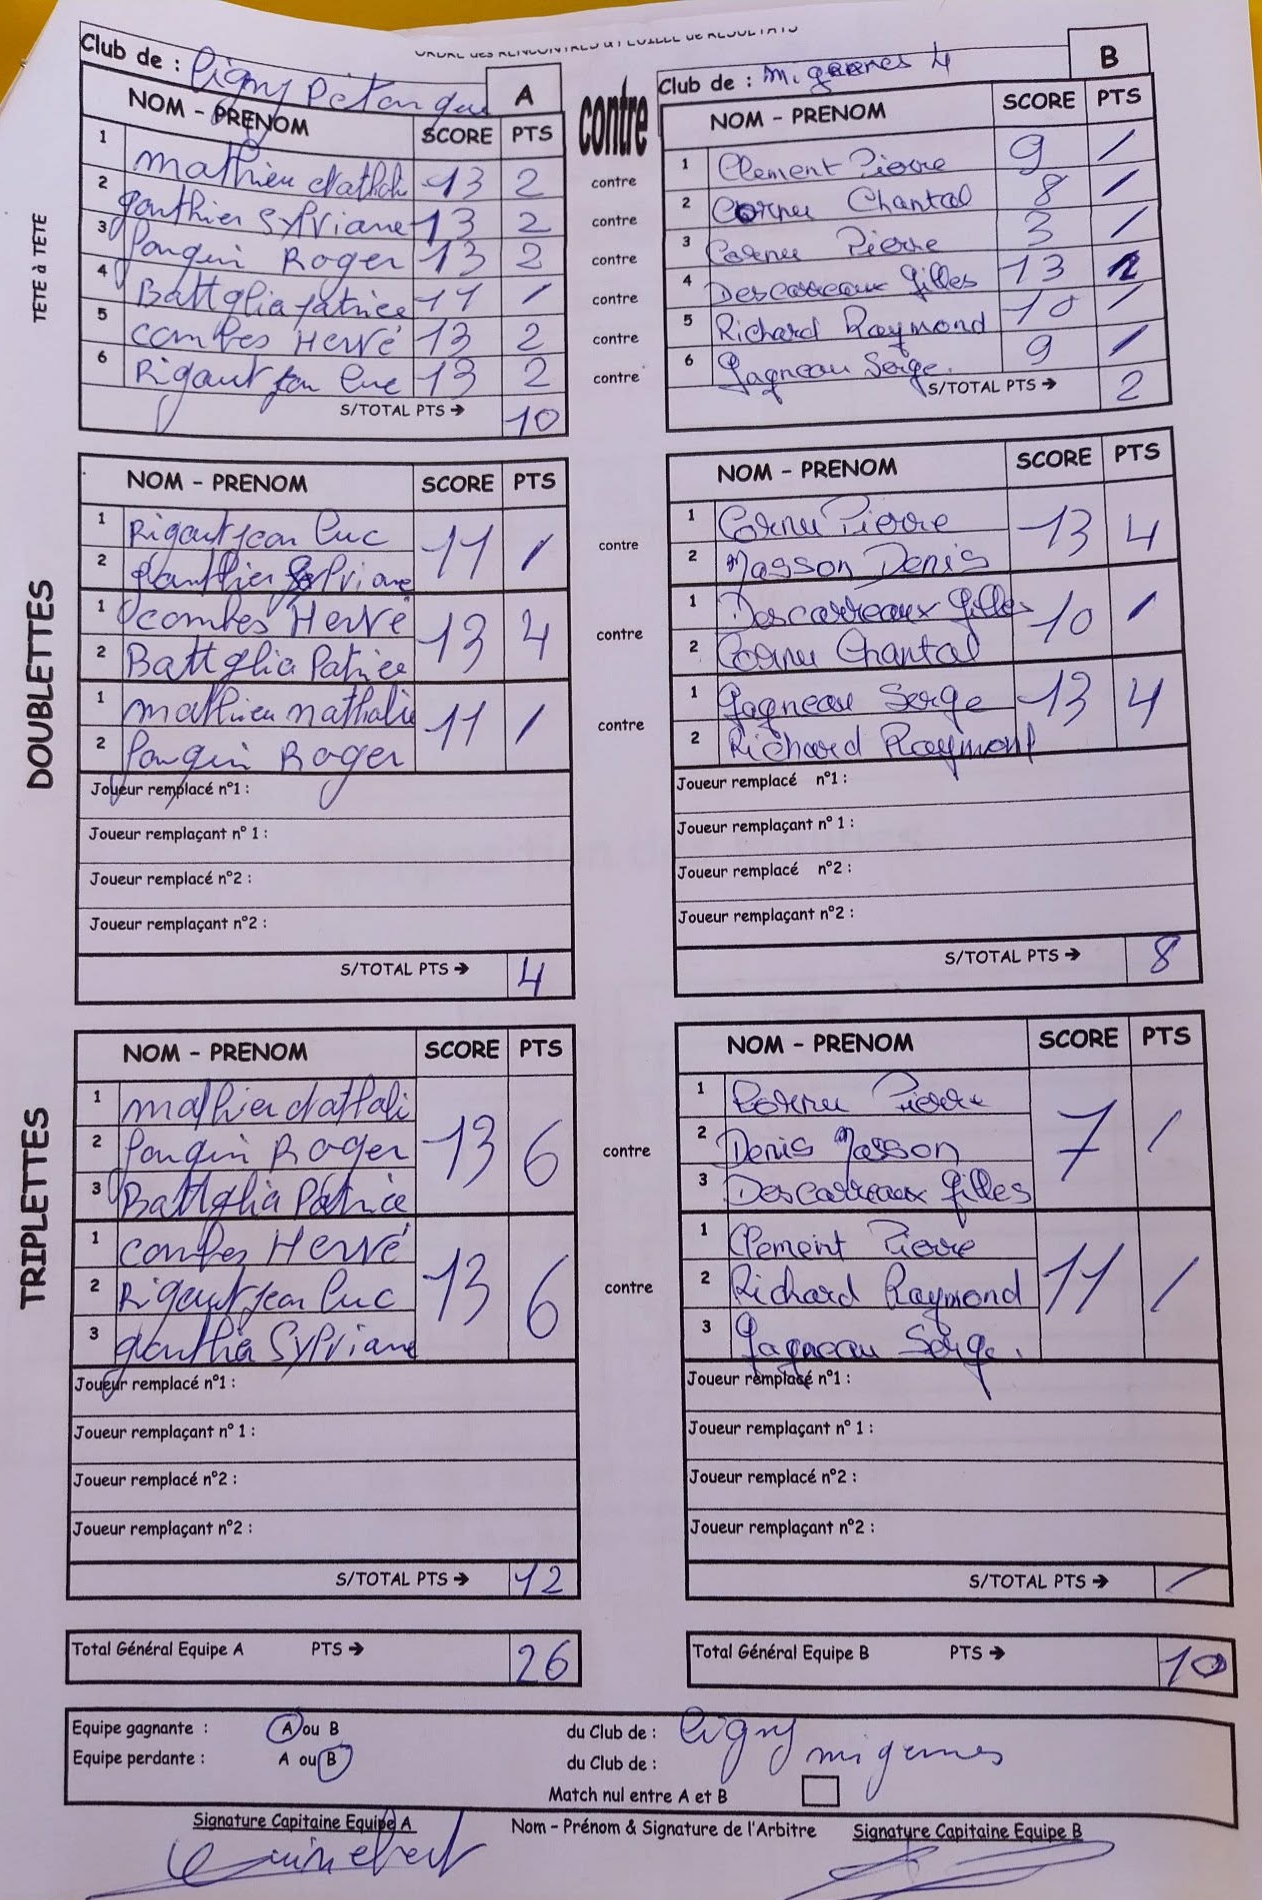 ORDRE des RENCONTRES & FEUILLE de RESULTATS
Club de : Ligny Pétanque A
contre
Club de : Migennes 4 B
TETE à TETE
NOM - PRENOM SCORE PTS
1 Mathieu Nathali 13 2
2 Gauthier Sylviane 13 2
3 Ponquin Roger 13 2
4 Battglia Patrice 11 /
5 Combes Hervé 13 2
6 Rigaut Jean Luc 13 2
S/TOTAL PTS → 10
contre
contre
contre
contre
contre
contre
NOM - PRENOM SCORE PTS
1 Clement Pierre 9 /
2 Cornu Chantal 8 /
3 Cornu Pierre 3 /
4 Descarreaux Gilles 13 2
5 Richard Raymond 10 /
6 Gagneau Serge 9 /
S/TOTAL PTS → 2
DOUBLETTES
NOM - PRENOM SCORE PTS
1 Rigaut Jean Luc 11 /
2 Gauthier Sylviane
1 Combes Hervé 13 4
2 Battglia Patrice
1 Mathieu Nathalie 11 /
2 Ponquin Roger
Joueur remplacé n°1 :
Joueur remplaçant n° 1 :
Joueur remplacé n°2 :
Joueur remplaçant n°2 :
S/TOTAL PTS → 4
contre
contre
contre
NOM - PRENOM SCORE PTS
1 Cornu Pierre 13 4
2 Masson Denis
1 Descarreaux Gilles 10 /
2 Cornu Chantal
1 Gagneau Serge 13 4
2 Richard Raymont
Joueur remplacé n°1 :
Joueur remplaçant n° 1 :
Joueur remplacé n°2 :
Joueur remplaçant n°2 :
S/TOTAL PTS → 8
TRIPLETTES
NOM - PRENOM SCORE PTS
1 Mathieu Nathali 13 6
2 Ponquin Roger
3 Battglia Patrice
1 Combes Hervé 13 6
2 Rigaut Jean Luc
3 Gauthier Sylviane
Joueur remplacé n°1 :
Joueur remplaçant n° 1 :
Joueur remplacé n°2 :
Joueur remplaçant n°2 :
S/TOTAL PTS → 12
contre
contre
NOM - PRENOM SCORE PTS
1 Cornu Pierre 7 /
2 Denis Masson
3 Descarreaux Gilles
1 Clement Pierre 11 /
2 Richard Raymond
3 Gagneau Serge.
Joueur remplacé n°1 :
Joueur remplaçant n° 1 :
Joueur remplacé n°2 :
Joueur remplaçant n°2 :
S/TOTAL PTS → /
Total Général Equipe A PTS → 26
Total Général Equipe B PTS → 10
Equipe gagnante : A ou B du Club de : Ligny
Equipe perdante : A ou B du Club de : migennes
Match nul entre A et B
Signature Capitaine Equipe A Nom - Prénom & Signature de l'Arbitre Signature Capitaine Equipe B